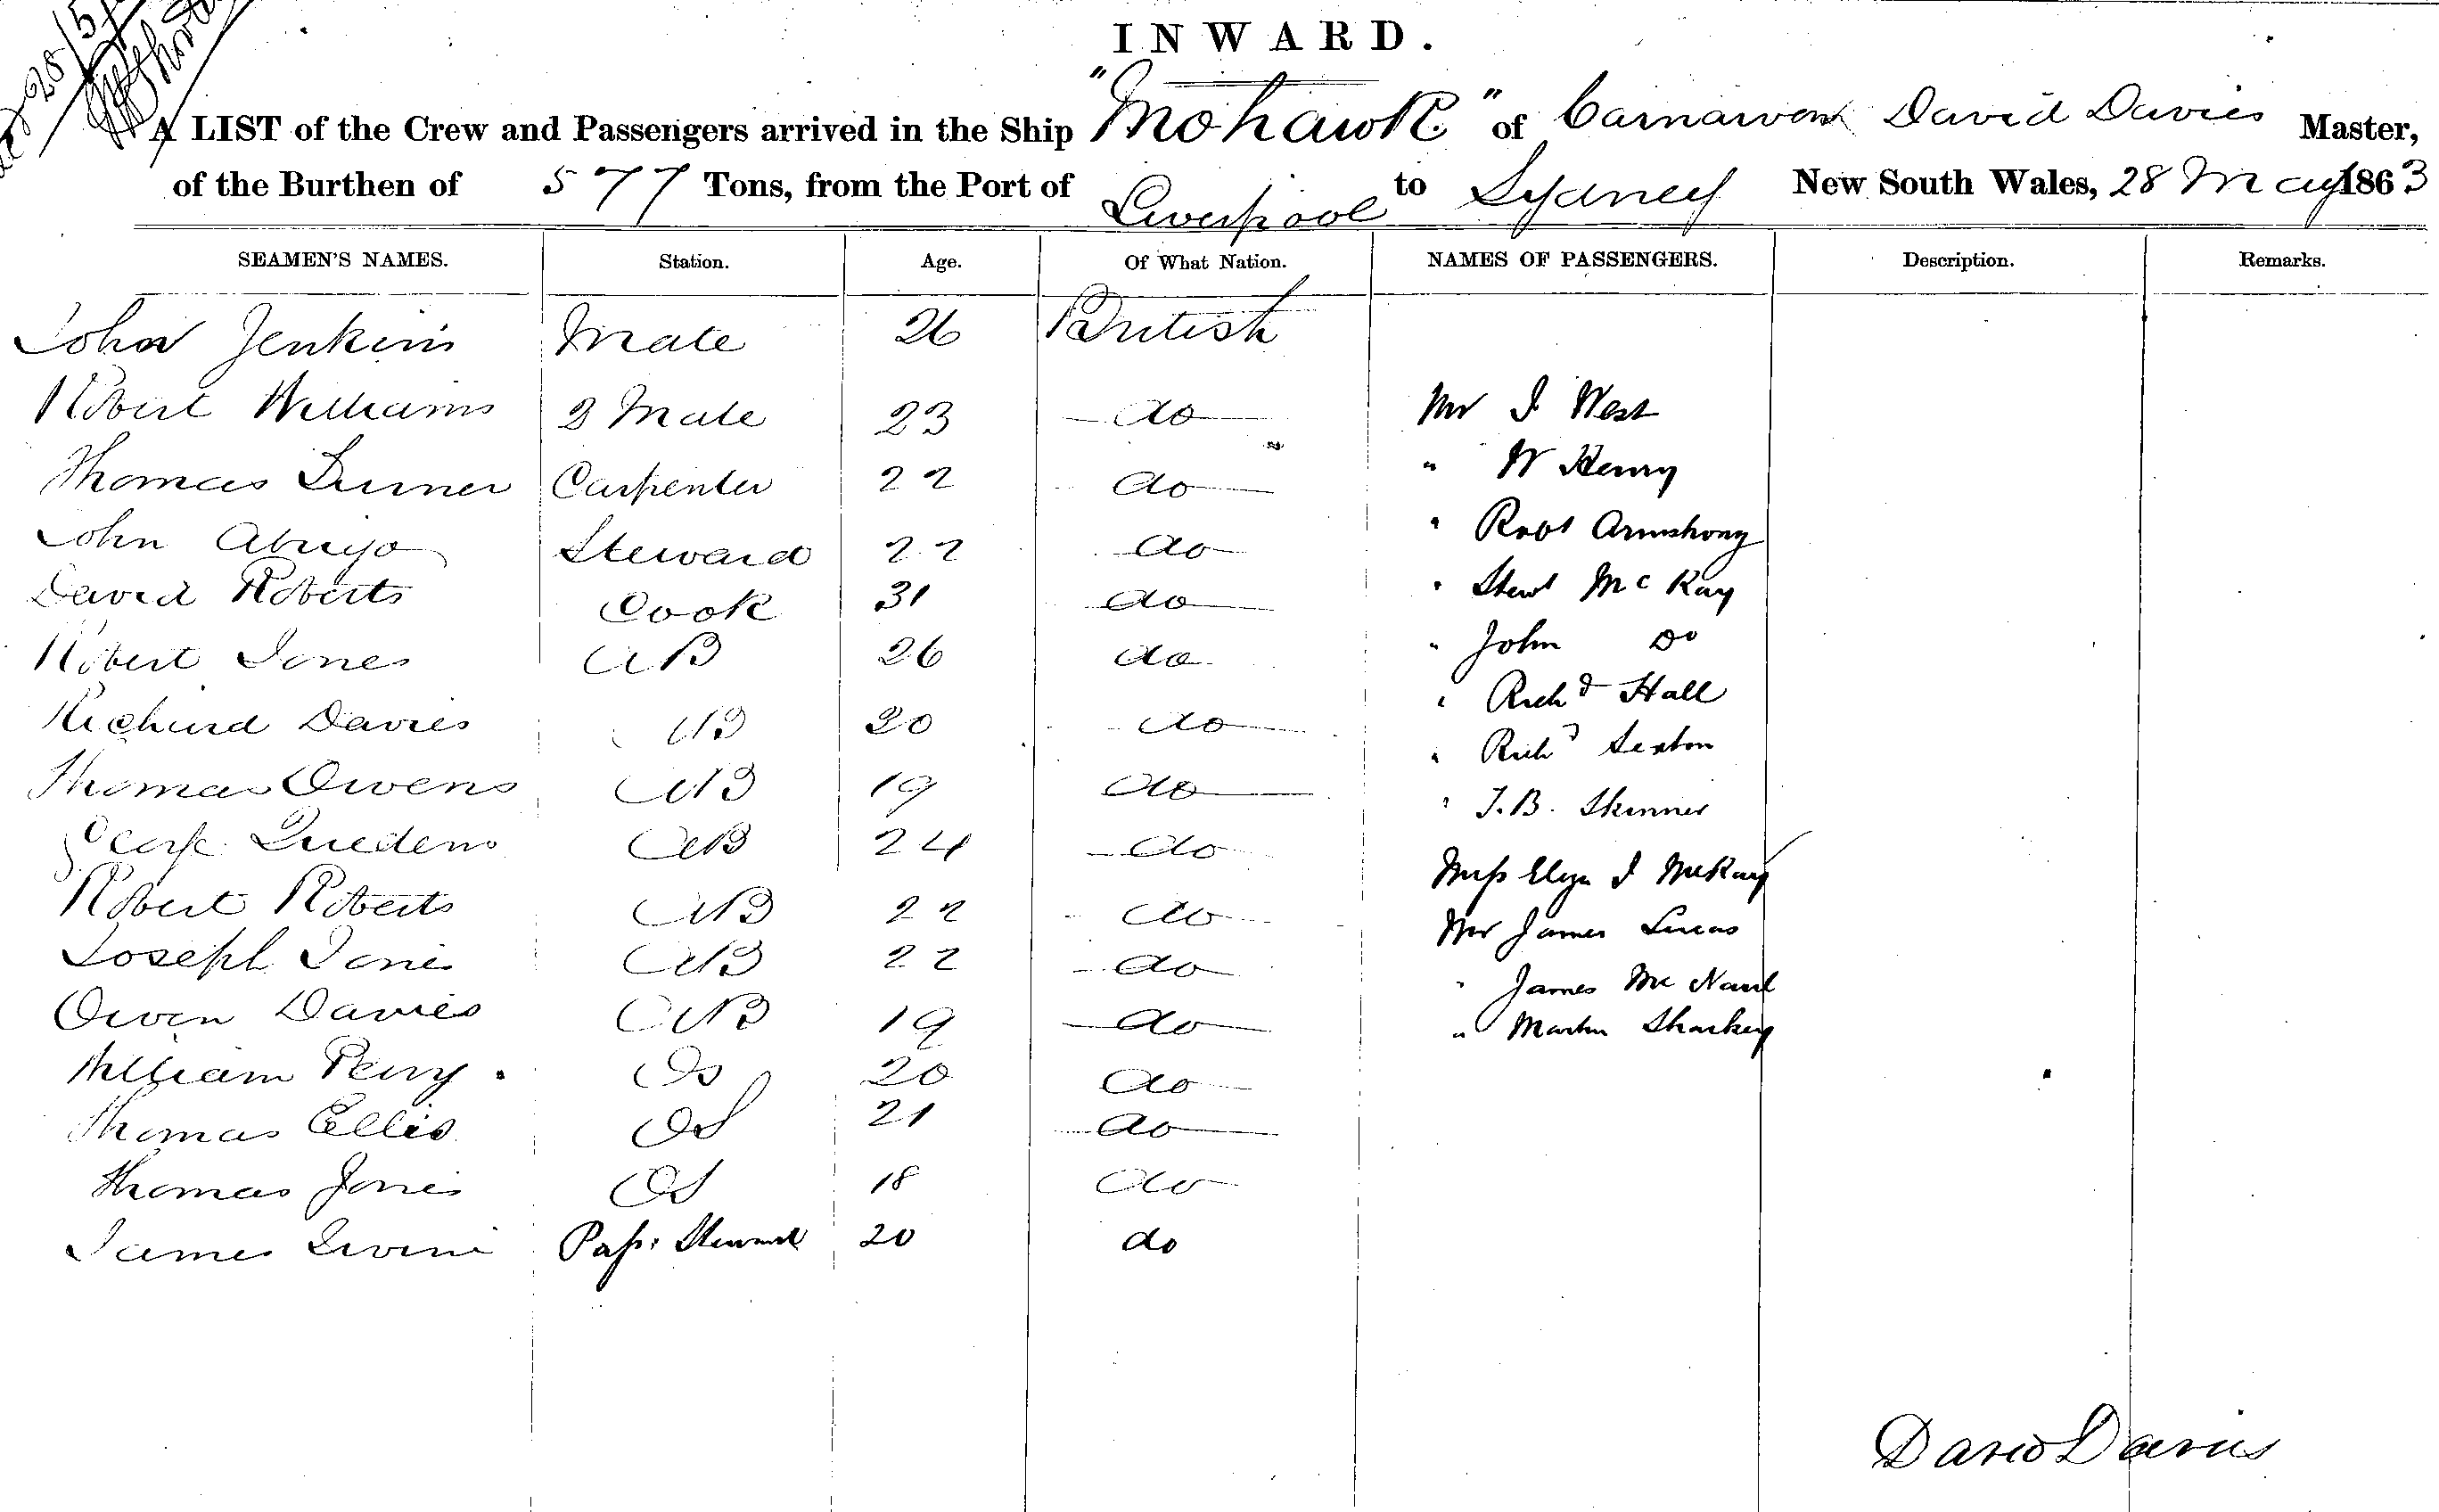 INWARD.
A LIST of the Crew and Passengers arrived in the Ship "Mohawk" of Carnarvon David Davies Master,
of the Burthen of 577 Tons, from the Port of Liverpool to Sydney New South Wales, 28 May 1863
SEAMEN'S NAMES. Station. Age. Of What Nation. NAMES OF PASSENGERS. Description. Remarks.
John Jenkins Mate 26 British
Robert Williams 2 Mate 23 do Mr J West
Thomas Turner Carpenter 22 do " W Henry
John Steward 22 do " Robt Armstrong
David Roberts Cook 31 do " Stewt McKay
Robert Jones AB 26 do " John Do
Richard Davies AB 20 do " Richd Hall
Thomas Owens AB 19 do " Richd Sexton
AB 24 do " J.B. Skinner
Robert Roberts AB 22 do Miss Eliza J McKay
Joseph Jones AB 22 do Mr James Lucas
Owen Davies AB 19 do " James Mc
William Perry OS 20 do " Martin Sharkey
Thomas Ellis OS 21 do
Thomas Jones OS 18 do
James Irvine Pass. Steward 20 do
David Davies